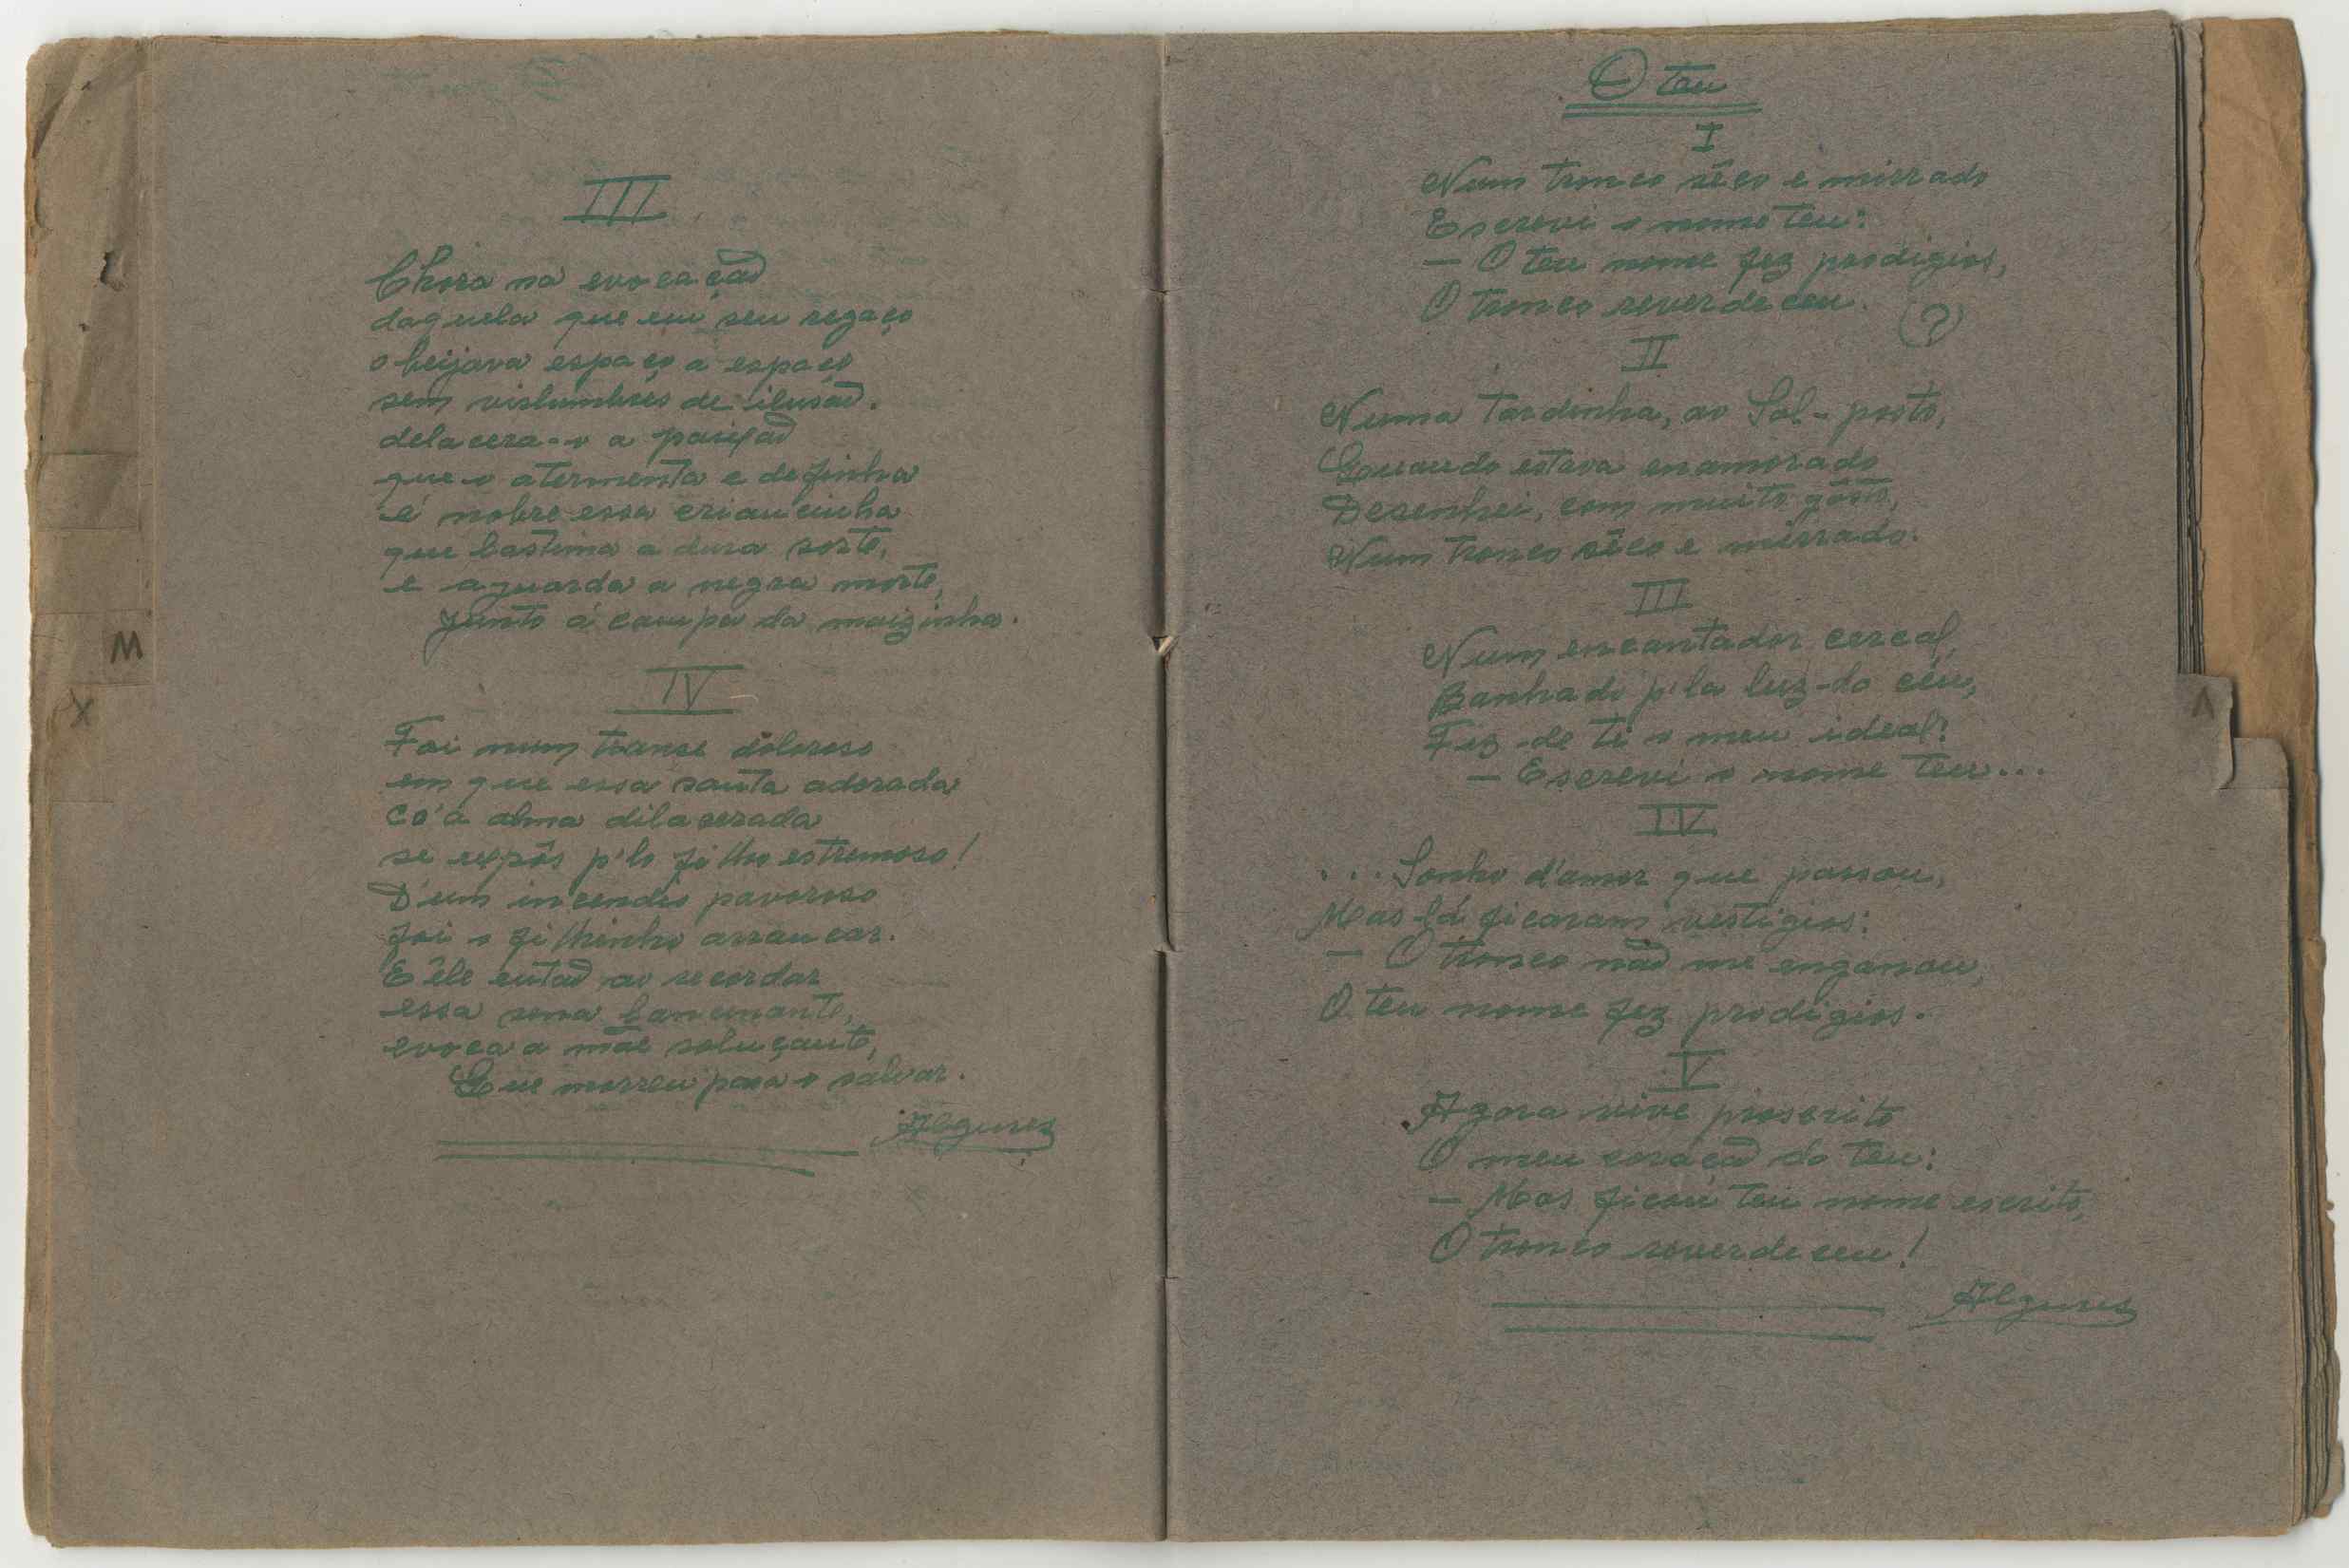 III
Chora na evocação
daquela que em seu regaço
o beijava espaço a espaço
sem vislumbres de ilusão.
delacera-o a paixão
que o atermenta e definha
é nobre essa criancinha
que lastima a dura sorte,
e aguarda a negra morte,
junto á campa da maizinha.
IV
Foi num transe doloroso
em que essa santa adorada
co'a alma dilacerada
se expôs p'lo filho estremoso!
D'um incendio pavoroso
foi o filhinho arrancar.
E êle entaõ ao recordar
essa sena lancinante,
evoca a mãe soluçante,
Que morreu para o salvar.
Algures
M
X
O teu
I
Num tronco sêco e mirrado
Escrevi o nome teu:
— O teu nome fez prodigios,
O tronco reverdeceu.
(?)
II
Numa tardinha, ao Sol-posto,
Quando estava enamorado
Desenhei, com muito gôsto,
Num tronco sêco e mirrado.
III
Num encantador cercal,
Banhado p'la luz-do céu,
Fiz-de ti o meu ideal:
— Escrevi o nome teu...
IV
... Sonho d'amor que passou,
Mas lá ficaram vestigios:
— O tronco não me enganou,
O teu nome fez prodigios.
V
Agora vive proscrito
O meu coração do teu:
— Mas ficou teu nome escrito,
O tronco reverdeceu!
Algures